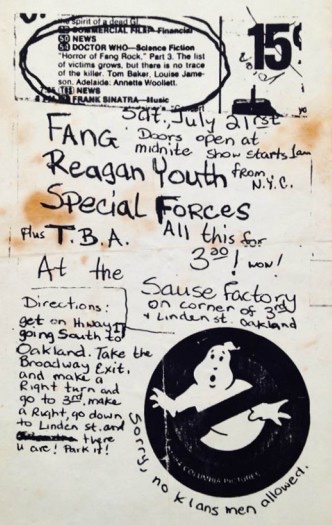 the spirit of a dead G!
COMMERCIAL FILM—Financial
NEWS
DOCTOR WHO—Science Fiction
"Horror of Fang Rock." Part 3. The list
of victims grows, but there is no trace
of the killer. Tom Baker, Louise Jame-
son. Adelaide: Annette Woollett.
NEWS
FRANK SINATRA—Music
15¢
Sat. July 21rst
FANG Doors open at
midnite show starts 1am
Reagan Youth from
N.Y.C.
Special Forces
Plus T.B.A. All this for
3.00! wow!
At the
Sause Factory
on corner of 3rd
& Linden st. oakland
Directions:
get on Hiway 17
going South to
Oakland. Take the
Broadway Exit,
and make a
Right turn and
go to 3rd. make
a Right, go down
to Linden st. and
there
u are! Park it!
COLUMBIA PICTURES
Sorry, no klans men allowed.